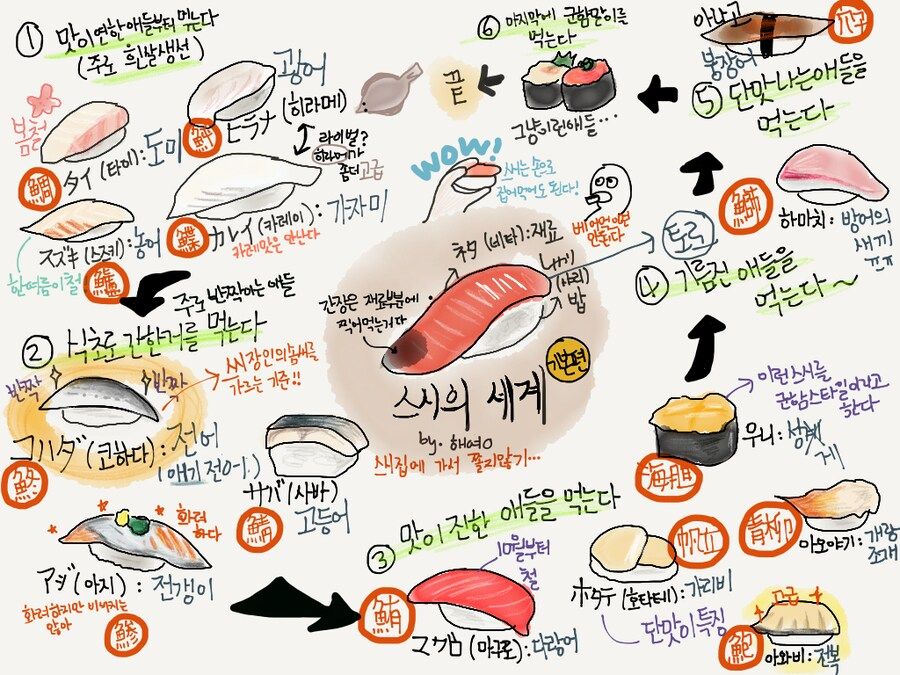 ① 맛이 연한 애들부터 먹는다
(주로 흰살생선)
광어
ヒラメ (히라메)
봄철
タイ (타이): 도미
鯛
라이벌?
히라메가
좀더 고급
カレイ (카레이): 가자미
카레맛은 안난다
鰈
スズキ (스즈키): 농어
한여름이 철
鱸
② 식초로 간한거를 먹는다
주로 반짝하는 애들
반짝
반짝
씨장인의 솜씨를
가르는 기준!!
コハダ (코하다): 전어
(애기 전어)
サバ (사바)
고등어
鯖
화려
하다
アジ (아지): 전갱이
화려하지만 비싸지는
않아
鯵
WOW!
스시는 손으로
집어먹어도 된다!
베어먹으면
안된다
ネタ (네타): 재료
샤리
(사리)
밥
간장은 재료부분에
찍어먹는거다
스시의 세계
기본편
by. 해영
스시집에 가서 쫄지않기...
③ 맛이 진한 애들을 먹는다
10월부터
철
鮪
マグロ (마구로): 다랑어
帆立
ホタテ (호타테): 가리비
단맛이 특징
青柳
아오야기: 개량
조개
고급
鮑
아와비: 전복
이런 스시를
군함스타일이라고
한다
우니: 성게
海胆
④ 기름진 애들을
먹는다~
토로
鰤
하마치: 방어의
새끼
ㄲㄲ
⑤ 단맛 나는 애들을
먹는다
아나고
붕장어
穴子
⑥ 마지막에 군함말이를
먹는다
그냥 이런애들...
끝